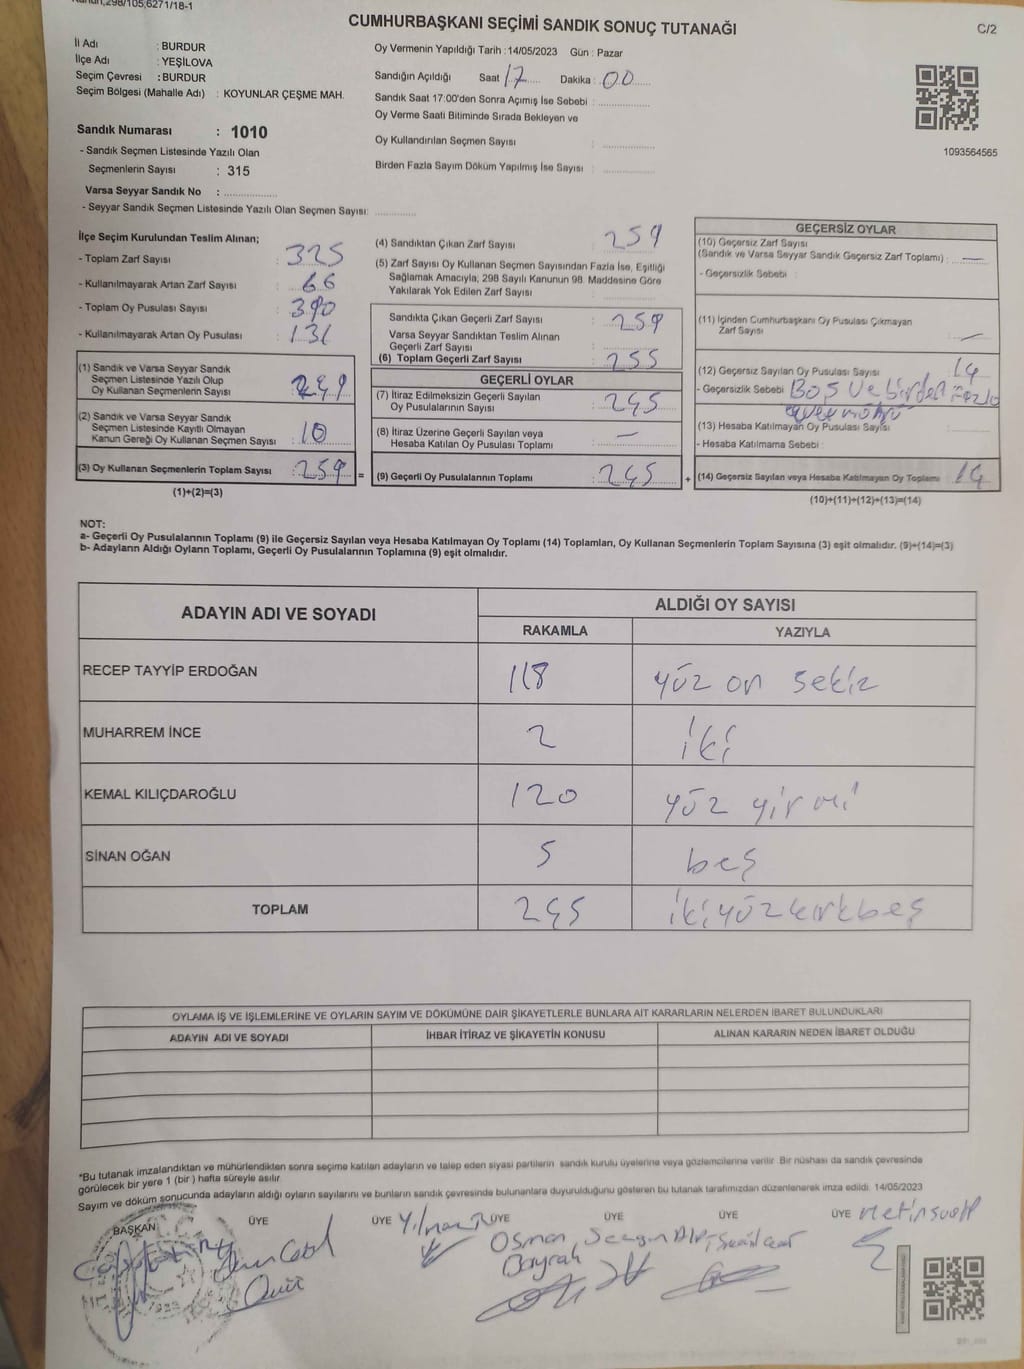 Kanun,298/105,6271/18-1
CUMHURBAŞKANI SEÇİMİ SANDIK SONUÇ TUTANAĞI
C/2
İl Adı : BURDUR
İlçe Adı : YEŞİLOVA
Seçim Çevresi : BURDUR
Seçim Bölgesi (Mahalle Adı) : KOYUNLAR ÇEŞME MAH.
Sandık Numarası : 1010
- Sandık Seçmen Listesinde Yazılı Olan
Seçmenlerin Sayısı : 315
Varsa Seyyar Sandık No :
- Seyyar Sandık Seçmen Listesinde Yazılı Olan Seçmen Sayısı:
Oy Vermenin Yapıldığı Tarih : 14/05/2023 Gün : Pazar
Sandığın Açıldığı Saat 17 Dakika : 00
Sandık Saat 17:00'den Sonra Açımış İse Sebebi :
Oy Verme Saati Bitiminde Sırada Bekleyen ve
Oy Kullandırılan Seçmen Sayısı :
Birden Fazla Sayım Döküm Yapılmış İse Sayısı :
1093564565
İlçe Seçim Kurulundan Teslim Alınan;
- Toplam Zarf Sayısı : 325
- Kullanılmayarak Artan Zarf Sayısı : 66
- Toplam Oy Pusulası Sayısı : 390
- Kullanılmayarak Artan Oy Pusulası : 131
(1) Sandık ve Varsa Seyyar Sandık
Seçmen Listesinde Yazılı Olup
Oy Kullanan Seçmenlerin Sayısı : 249
(2) Sandık ve Varsa Seyyar Sandık
Seçmen Listesinde Kayıtlı Olmayan
Kanun Gereği Oy Kullanan Seçmen Sayısı : 10
(3) Oy Kullanan Seçmenlerin Toplam Sayısı : 259 =
(1)+(2)=(3)
(4) Sandıktan Çıkan Zarf Sayısı : 259
(5) Zarf Sayısı Oy Kullanan Seçmen Sayısından Fazla İse, Eşitliği
Sağlamak Amacıyla, 298 Sayılı Kanunun 98. Maddesine Göre
Yakılarak Yok Edilen Zarf Sayısı :
Sandıkta Çıkan Geçerli Zarf Sayısı : 259
Varsa Seyyar Sandıktan Teslim Alınan
Geçerli Zarf Sayısı :
(6) Toplam Geçerli Zarf Sayısı : 255
GEÇERLİ OYLAR
(7) İtiraz Edilmeksizin Geçerli Sayılan
Oy Pusulalarının Sayısı : 245
(8) İtiraz Üzerine Geçerli Sayılan veya
Hesaba Katılan Oy Pusulası Toplamı : —
(9) Geçerli Oy Pusulalarının Toplamı : 245 +
GEÇERSİZ OYLAR
(10) Geçersiz Zarf Sayısı
(Sandık ve Varsa Seyyar Sandık Geçersiz Zarf Toplamı) : —
- Geçersizlik Sebebi :
(11) İçinden Cumhurbaşkanı Oy Pusulası Çıkmayan
Zarf Sayısı : —
(12) Geçersiz Sayılan Oy Pusulası Sayısı : 14
- Geçersizlik Sebebi : BOŞ ve birden fazla
(13) Hesaba Katılmayan Oy Pusulası Sayısı :
- Hesaba Katılmama Sebebi :
(14) Geçersiz Sayılan veya Hesaba Katılmayan Oy Toplamı : 14
(10)+(11)+(12)+(13)=(14)
NOT:
a- Geçerli Oy Pusulalarının Toplamı (9) ile Geçersiz Sayılan veya Hesaba Katılmayan Oy Toplamı (14) Toplamları, Oy Kullanan Seçmenlerin Toplam Sayısına (3) eşit olmalıdır. (9)+(14)=(3)
b- Adayların Aldığı Oyların Toplamı, Geçerli Oy Pusulalarının Toplamına (9) eşit olmalıdır.
ADAYIN ADI VE SOYADI
ALDIĞI OY SAYISI
RAKAMLA YAZIYLA
RECEP TAYYİP ERDOĞAN 118 yüz on sekiz
MUHARREM İNCE 2 iki
KEMAL KILIÇDAROĞLU 120 yüz yirmi
SİNAN OĞAN 5 beş
TOPLAM 245 ikiyüzkırkbeş
OYLAMA İŞ VE İŞLEMLERİNE VE OYLARIN SAYIM VE DÖKÜMÜNE DAİR ŞİKAYETLERLE BUNLARA AİT KARARLARIN NELERDEN İBARET BULUNDUKLARI
ADAYIN ADI VE SOYADI İHBAR İTİRAZ VE ŞİKAYETİN KONUSU ALINAN KARARIN NEDEN İBARET OLDUĞU
*Bu tutanak imzalandıktan ve mühürlendikten sonra seçime katılan adayların ve talep eden siyasi partilerin sandık kurulu üyelerine veya gözlemcilerine verilir. Bir nüshası da sandık çevresinde
görülecek bir yere 1 (bir) hafta süreyle asılır.
Sayım ve döküm sonucunda adayların aldığı oyların sayılarını ve bunların sandık çevresinde bulunanlara duyurulduğunu gösteren bu tutanak tarafımızdan düzenlenerek imza edildi. 14/05/2023
BAŞKAN ÜYE ÜYE ÜYE ÜYE ÜYE ÜYE
Osman
Bayrak